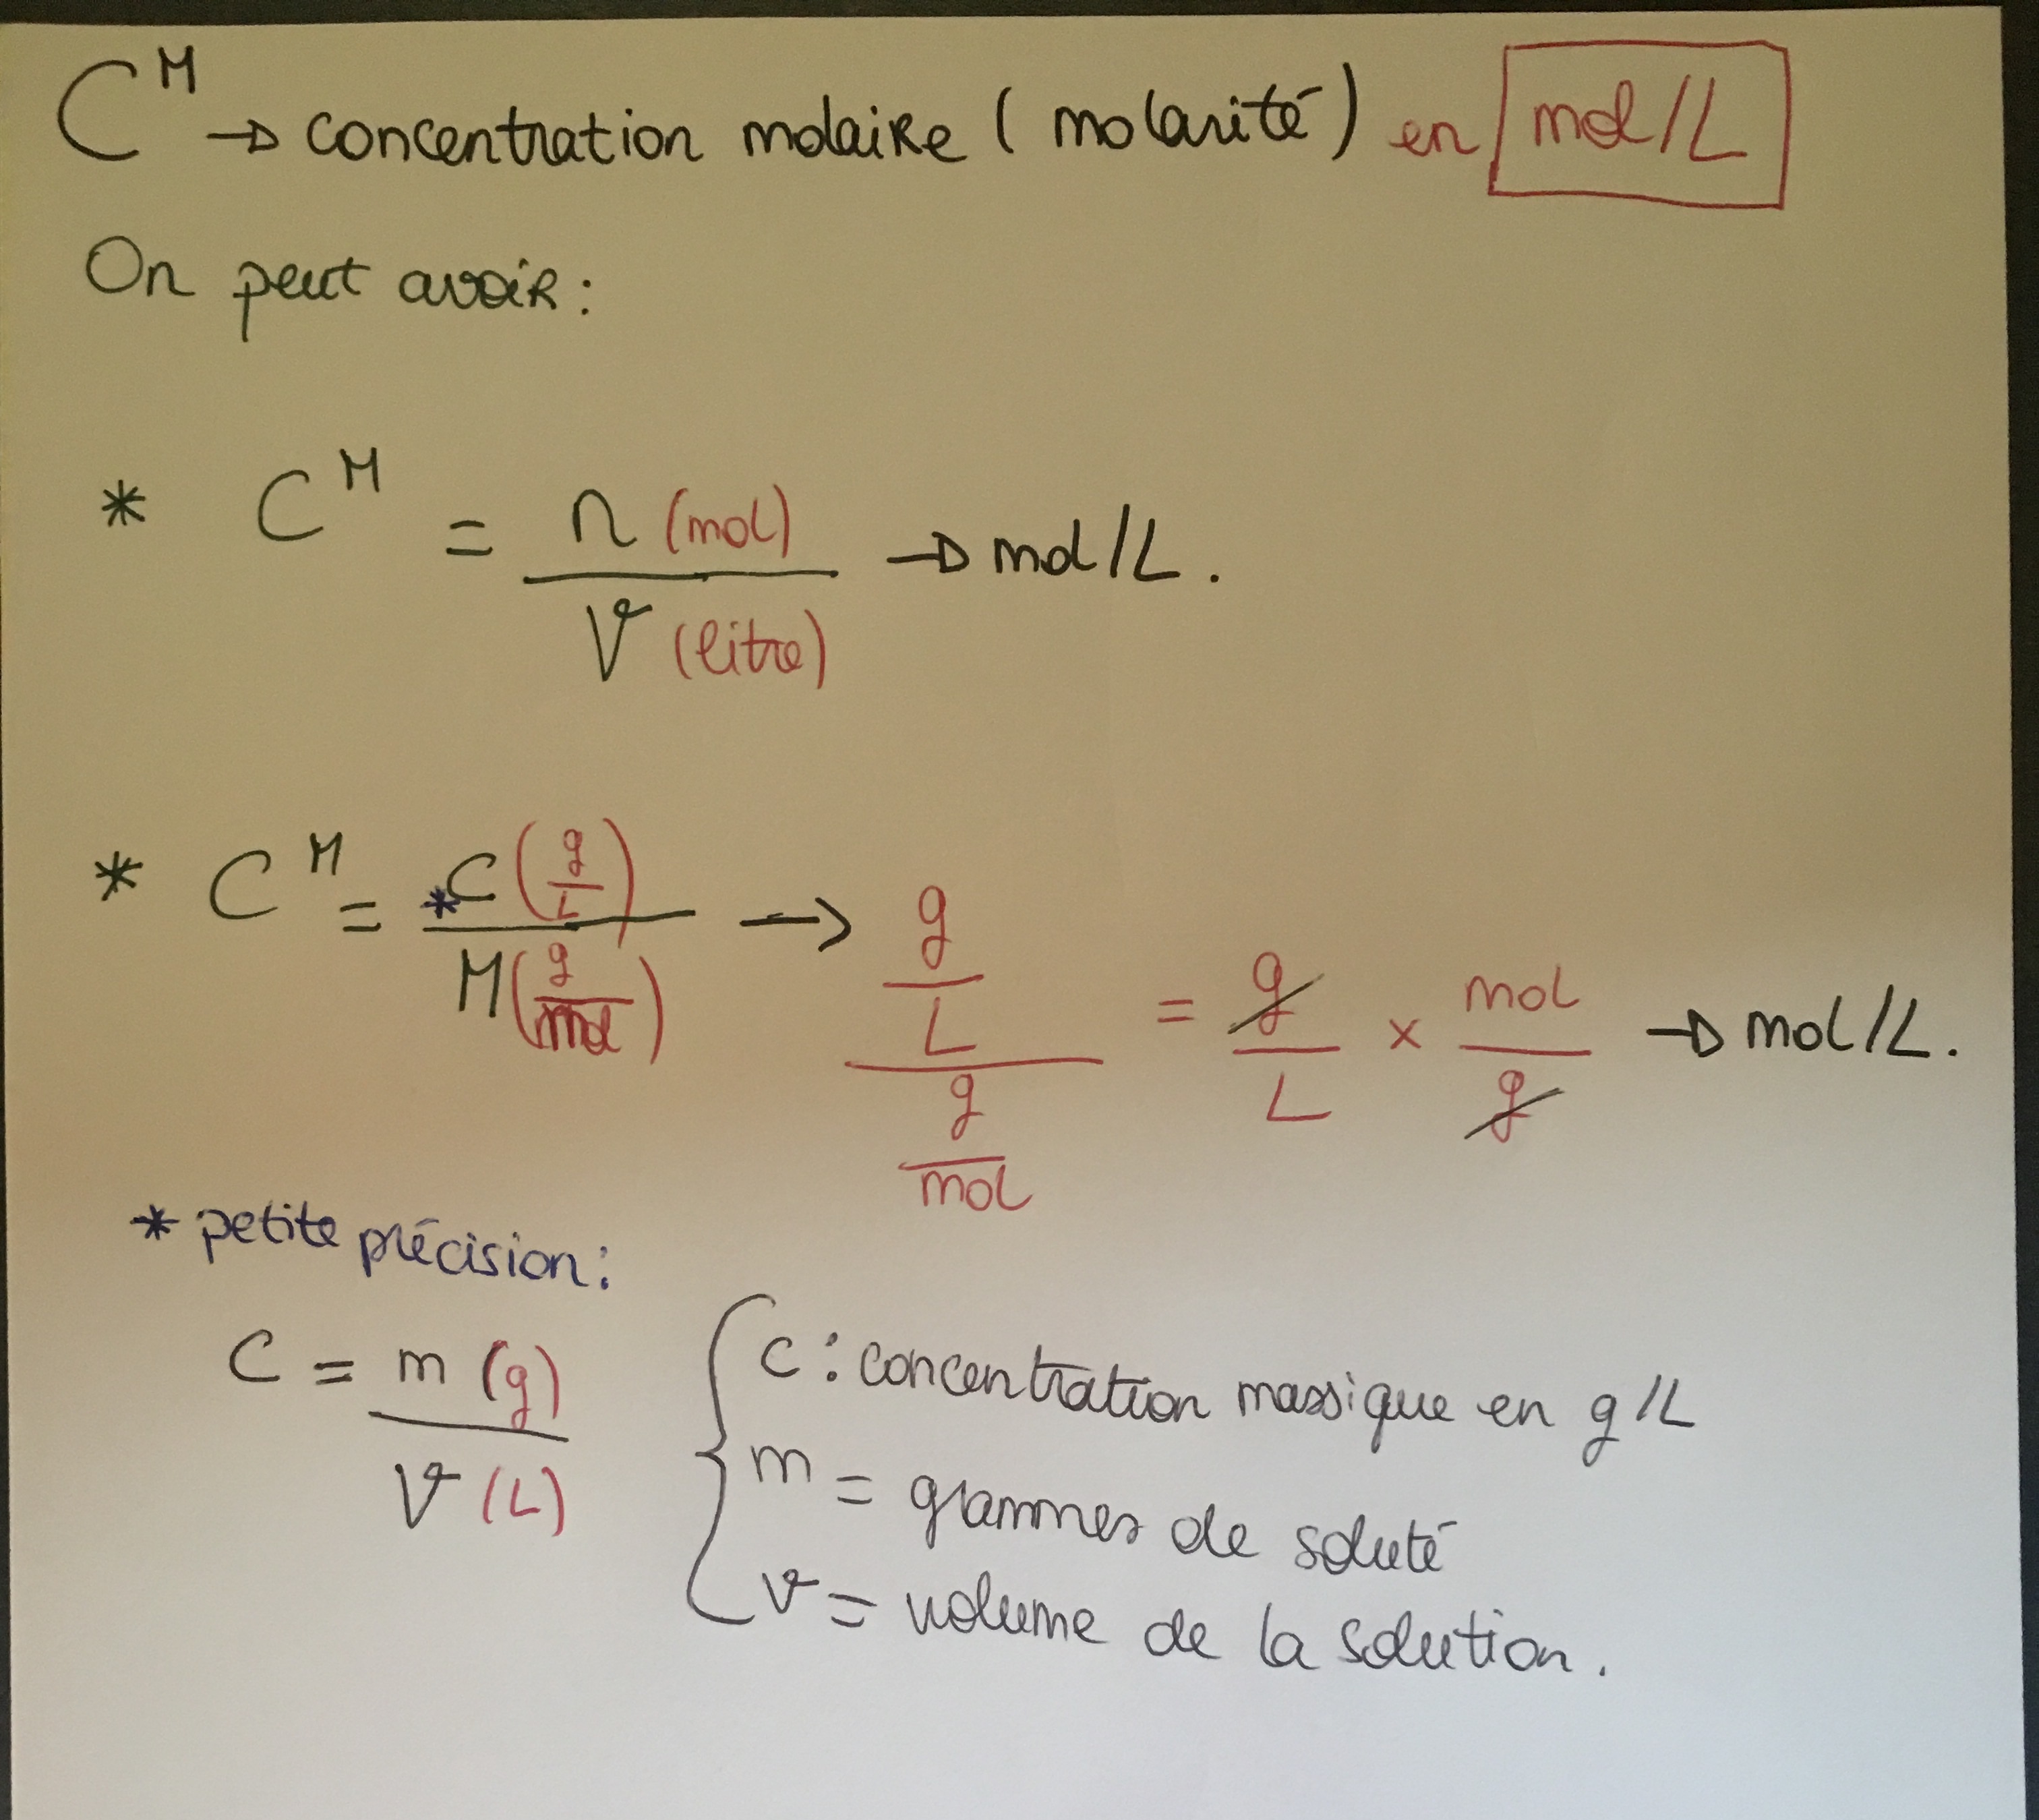 C^M → concentration molaire (molarité) en mol/L
On peut avoir :
* C^M = n (mol) / V (litre) → mol/L.
* C^M = *C (g/L) / M (g/mol) → g/L / g/mol = g/L × mol/g → mol/L.
* petite précision :
C = m (g) / V (L)
C : concentration massique en g/L
m = grammes de soluté
V = volume de la solution.